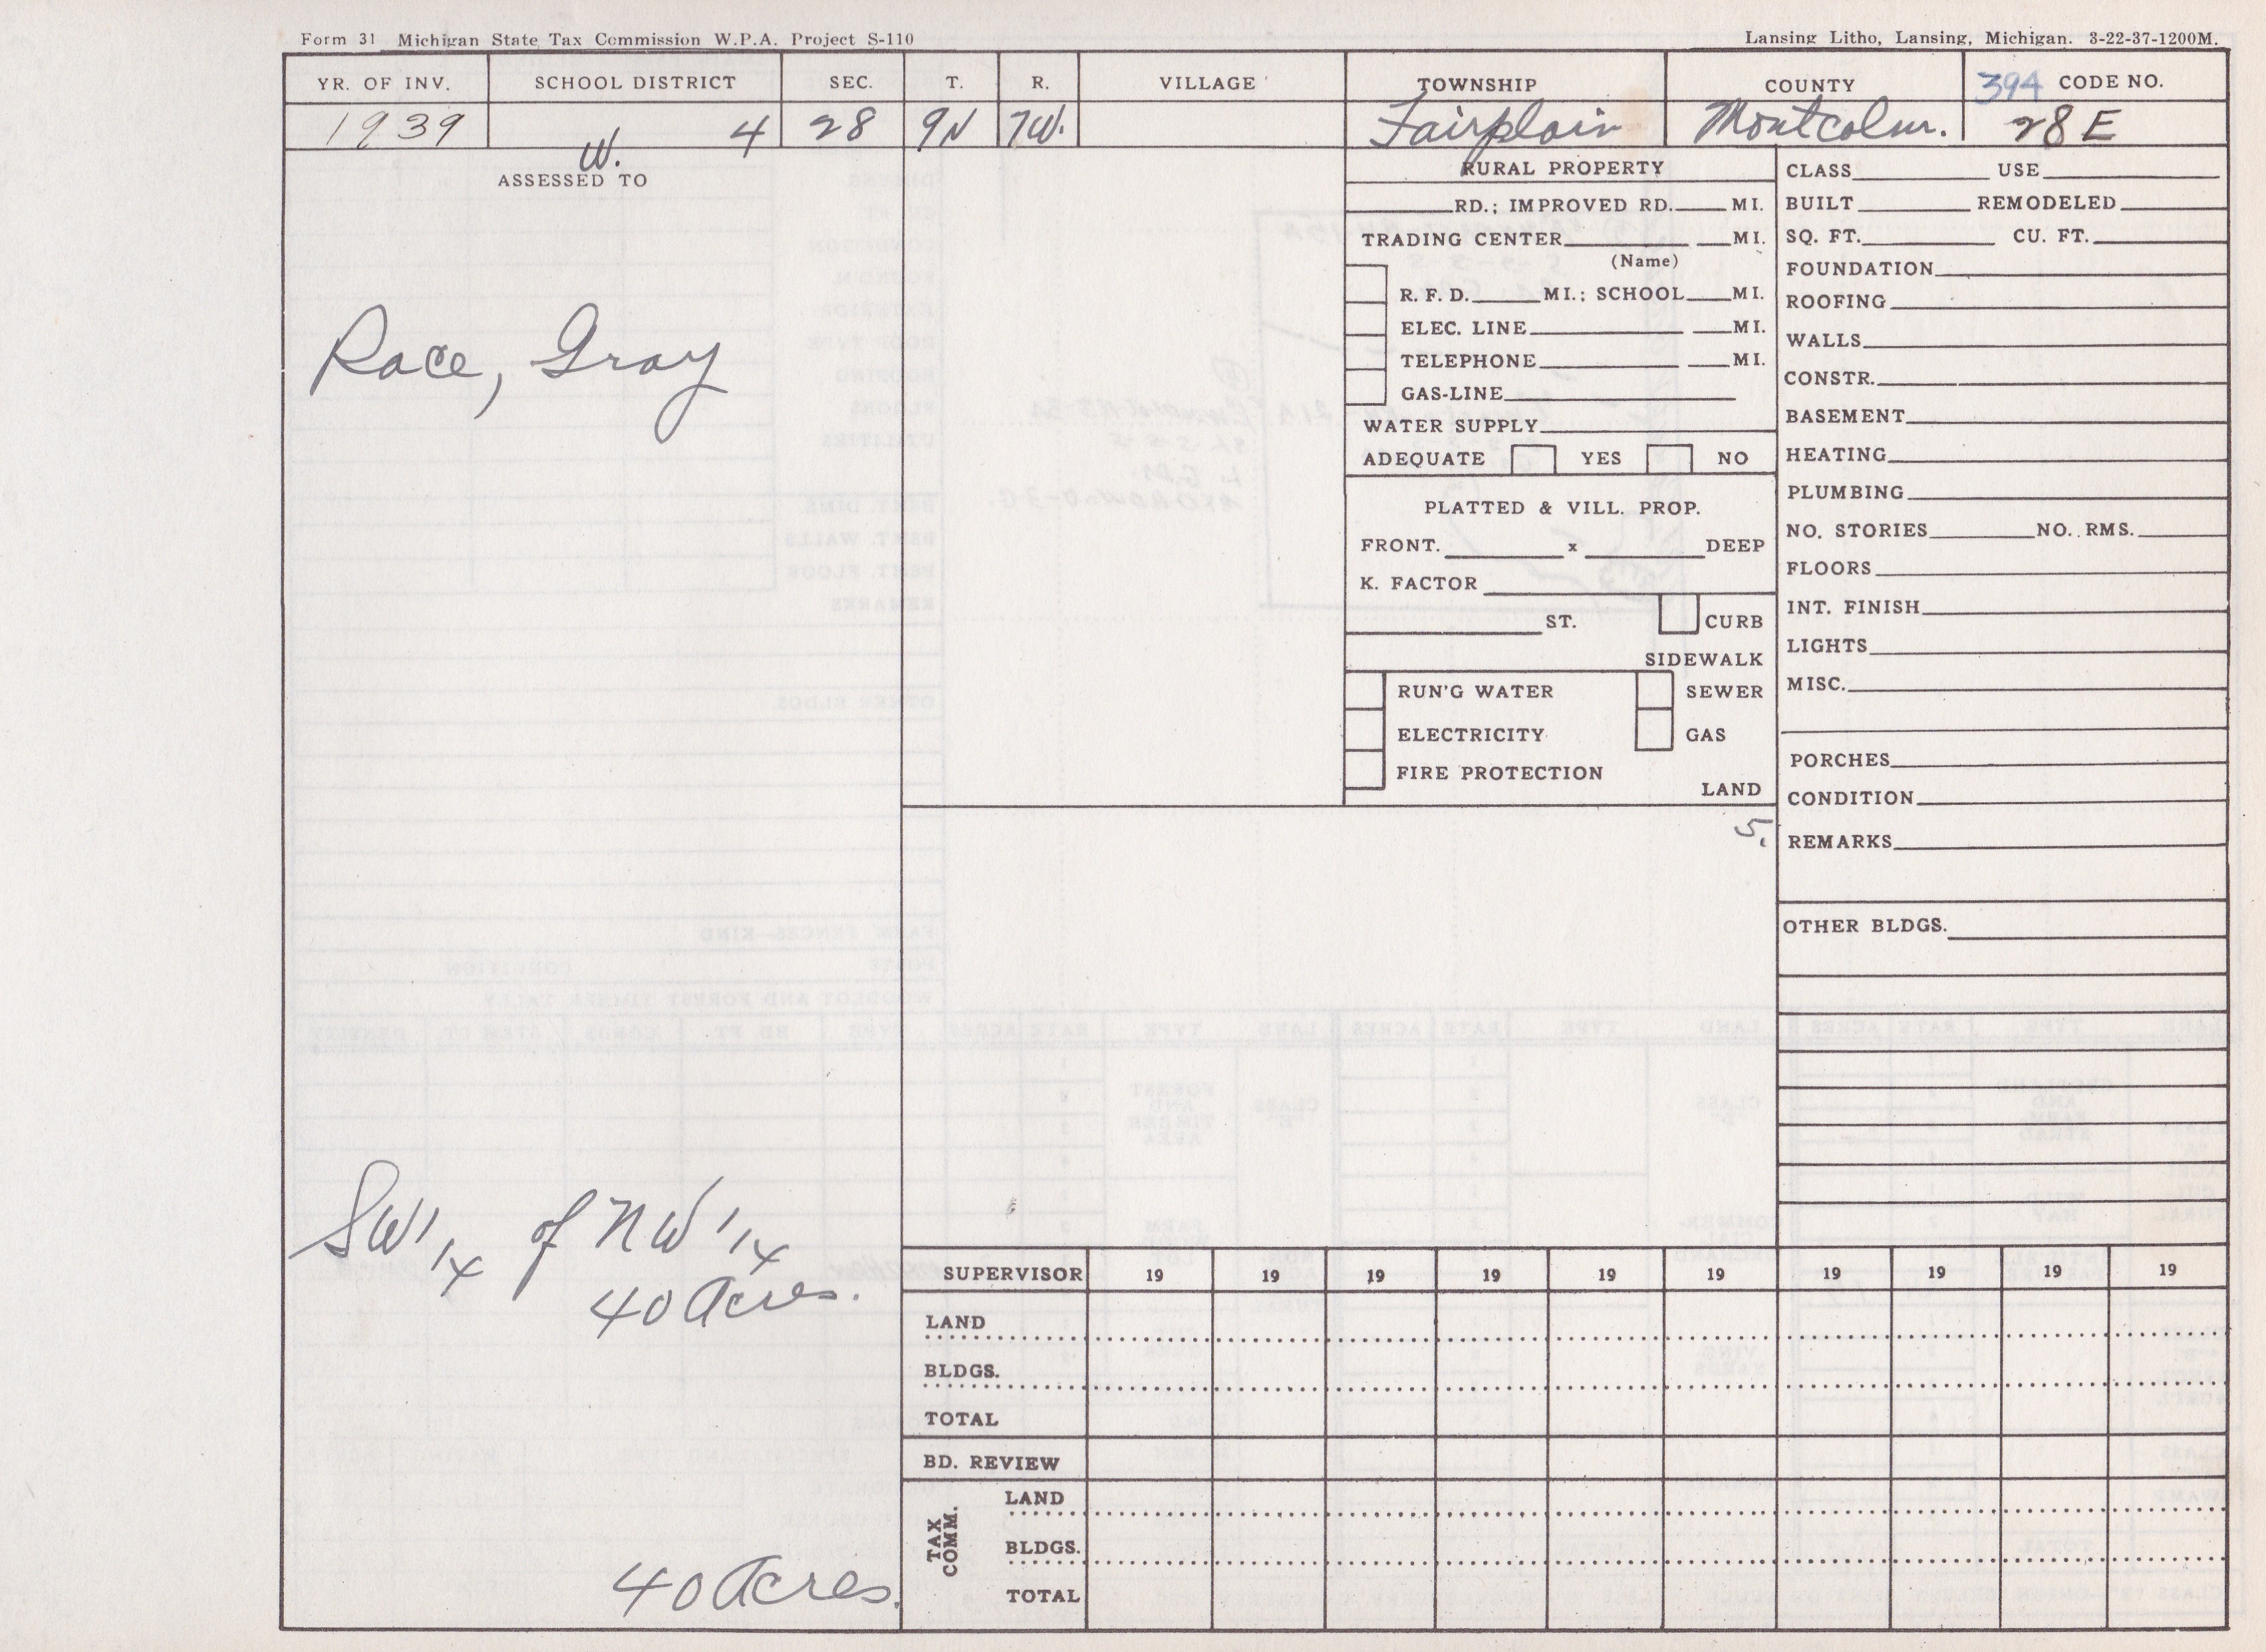 Form 31 Michigan State Tax Commission W.P.A. Project S-110
Lansing Litho, Lansing, Michigan. 3-22-37-1200M.
YR. OF INV. SCHOOL DISTRICT SEC. T. R. VILLAGE TOWNSHIP COUNTY 394 CODE NO.
1939 W. 4 28 9N 7W. Fairplain Montcalm. 28 E
ASSESSED TO
Race, Gray
SW 1/4 of NW 1/4
40 Acres.
40 Acres.
RURAL PROPERTY
RD.; IMPROVED RD. MI.
TRADING CENTER MI.
(Name)
R. F. D. MI.; SCHOOL MI.
ELEC. LINE MI.
TELEPHONE MI.
GAS-LINE
WATER SUPPLY
ADEQUATE YES NO
PLATTED & VILL. PROP.
FRONT. x DEEP
K. FACTOR
ST. CURB
SIDEWALK
RUN'G WATER SEWER
ELECTRICITY GAS
FIRE PROTECTION
LAND
5.
CLASS USE
BUILT REMODELED
SQ. FT. CU. FT.
FOUNDATION
ROOFING
WALLS
CONSTR.
BASEMENT
HEATING
PLUMBING
NO. STORIES NO. RMS.
FLOORS
INT. FINISH
LIGHTS
MISC.
PORCHES
CONDITION
REMARKS
OTHER BLDGS.
SUPERVISOR 19 19 19 19 19 19 19 19 19 19
LAND
BLDGS.
TOTAL
BD. REVIEW
TAX COMM.
LAND
BLDGS.
TOTAL